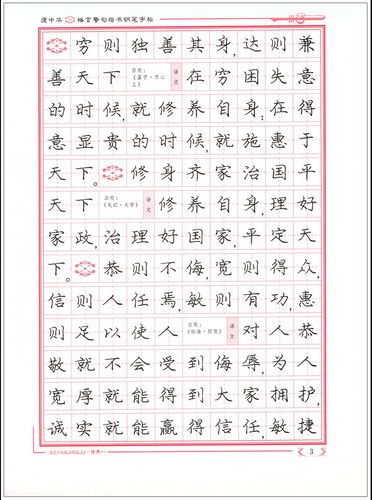 庞中华 格言警句楷书钢笔字帖
穷则独善其身,达则兼
善天下 出处:《孟子·尽心上》 译文 在穷困失意
的时候,就修养自身;在得
意显贵的时候,就施惠于
天下。 修身齐家治国平
天下 出处:《礼记·大学》 译文 修养自身,理好
家政,治理好国家,平定天
下。 恭则不侮,宽则得众,
信则人任焉,敏则有功,惠
则足以使人 出处:《论语·阳货》 译文 对人恭
敬就不会受到侮辱,为人
宽厚就能得到大家拥护,
诚实就能赢得信任,敏捷
GEYANJINGJU · 3